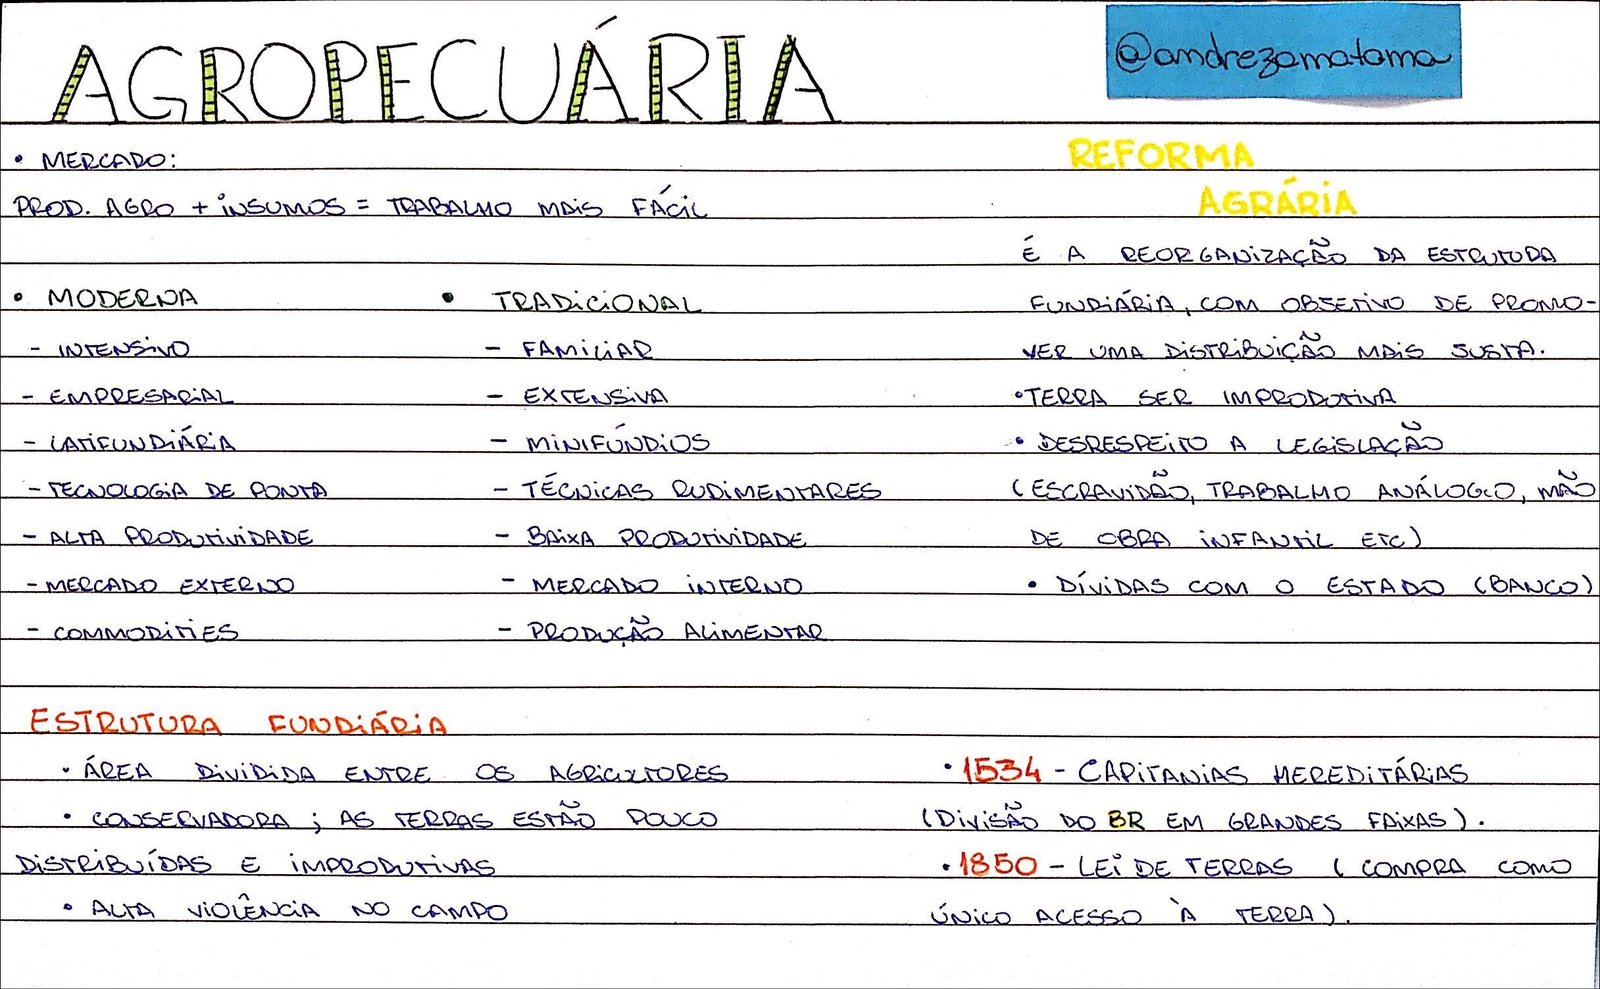 AGROPECUÁRIA
@andrezamatama
• MERCADO:
PROD. AGRO + INSUMOS = TRABALHO MAIS FÁCIL
• MODERNA
- INTENSIVO
- EMPRESARIAL
- LATIFUNDIÁRIA
- TECNOLOGIA DE PONTA
- ALTA PRODUTIVIDADE
- MERCADO EXTERNO
- COMMODITIES
• TRADICIONAL
- FAMILIAR
- EXTENSIVA
- MINIFÚNDIOS
- TÉCNICAS RUDIMENTARES
- BAIXA PRODUTIVIDADE
- MERCADO INTERNO
- PRODUÇÃO ALIMENTAR
REFORMA
AGRÁRIA
É A REORGANIZAÇÃO DA ESTRUTURA
FUNDIÁRIA, COM OBJETIVO DE PROMO-
VER UMA DISTRIBUIÇÃO MAIS JUSTA.
• TERRA SER IMPRODUTIVA
• DESRESPEITO A LEGISLAÇÃO
(ESCRAVIDÃO, TRABALHO ANÁLOGO, MÃO
DE OBRA INFANTIL ETC)
• DÍVIDAS COM O ESTADO (BANCO)
ESTRUTURA FUNDIÁRIA
• ÁREA DIVIDIDA ENTRE OS AGRICULTORES
• CONSERVADORA ; AS TERRAS ESTÃO POUCO
DISTRIBUÍDAS E IMPRODUTIVAS
• ALTA VIOLÊNCIA NO CAMPO
• 1534 - CAPITANIAS HEREDITÁRIAS
(DIVISÃO DO BR EM GRANDES FAIXAS).
• 1850 - LEI DE TERRAS ( COMPRA COMO
ÚNICO ACESSO À TERRA).